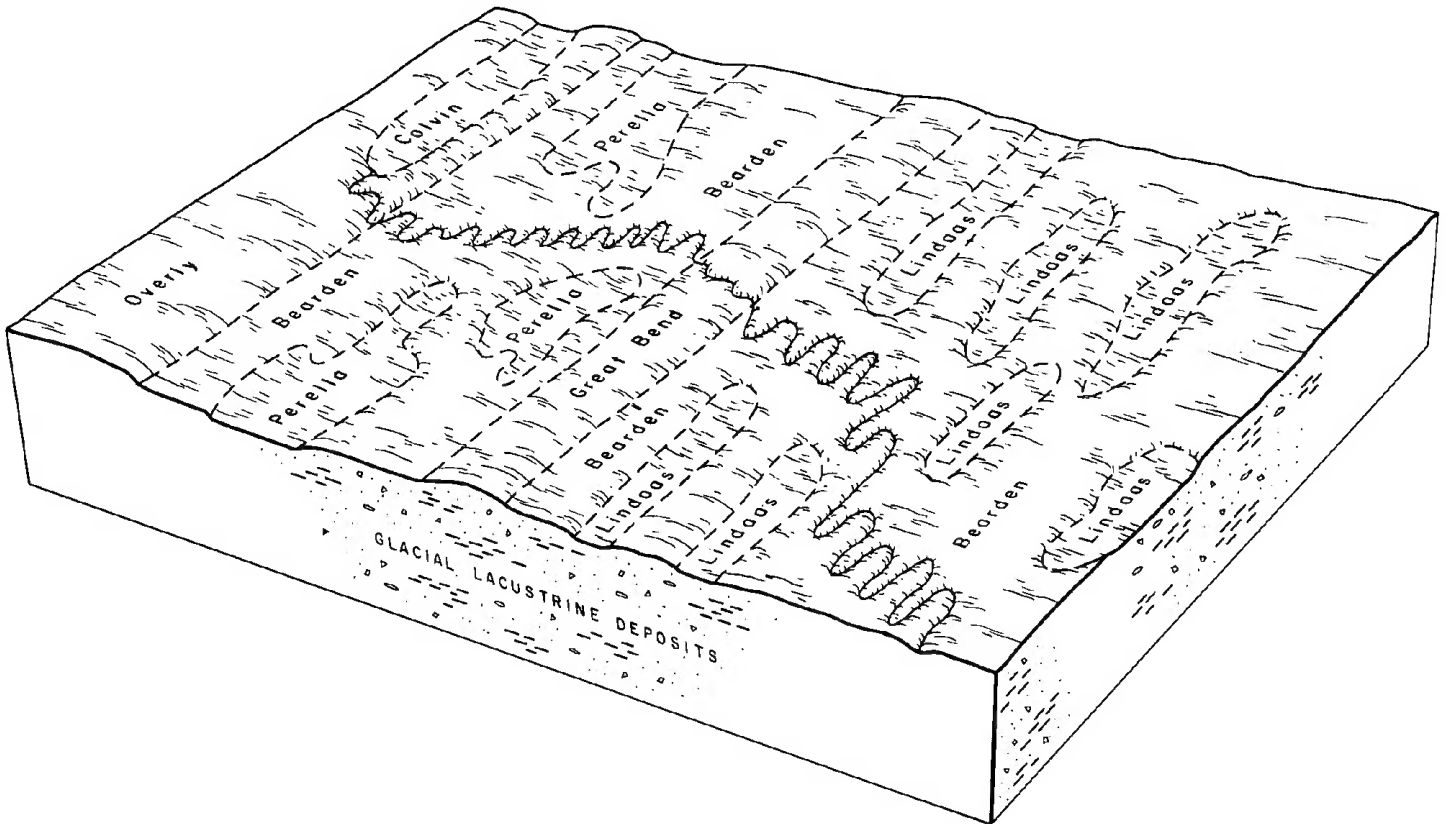 Colvin
Perella
Bearden
Lindaas
Lindaas
Lindaas
Overly
Bearden
Perella
Great Bend
Perella
Bearden
Lindaas
Lindaas
Lindaas
Bearden
Lindaas
GLACIAL LACUSTRINE DEPOSITS